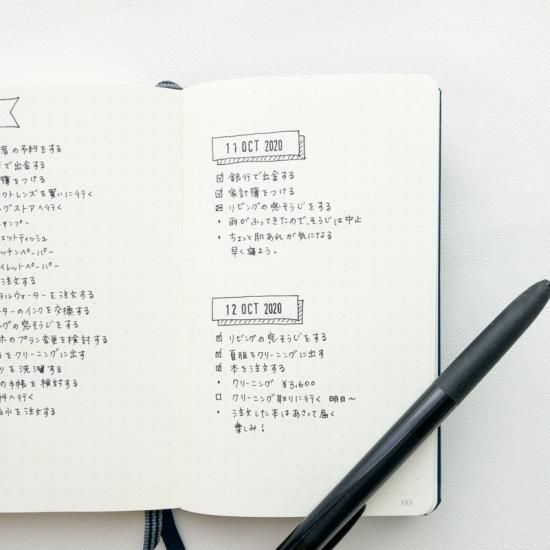 の予約をする
で出金する
簿をつける
クトレンズを買いに行く
グストアへ行く
ャンプー
ェットティッシュ
ッチンペーパー
イレットペーパー
注文する
ラルウォーターを注文する
ーターのインクを交換する
ングの窓そうじをする
ホのプラン変更を検討する
をクリーニングに出す
ツを洗濯する
の手帳を検討する
科へ行く
水を注文する
11 OCT 2020
銀行で出金する
家計簿をつける
リビングの窓そうじをする
・ 雨がふってきたので、そうじは中止
・ ちょっと肌あれが気になる
早く寝よう。
12 OCT 2020
リビングの窓そうじをする
夏服をクリーニングに出す
本を注文する
・ クリーニング ¥3,600
クリーニング取りに行く 明日〜
・ 注文した本はあさって届く
楽しみ!
103